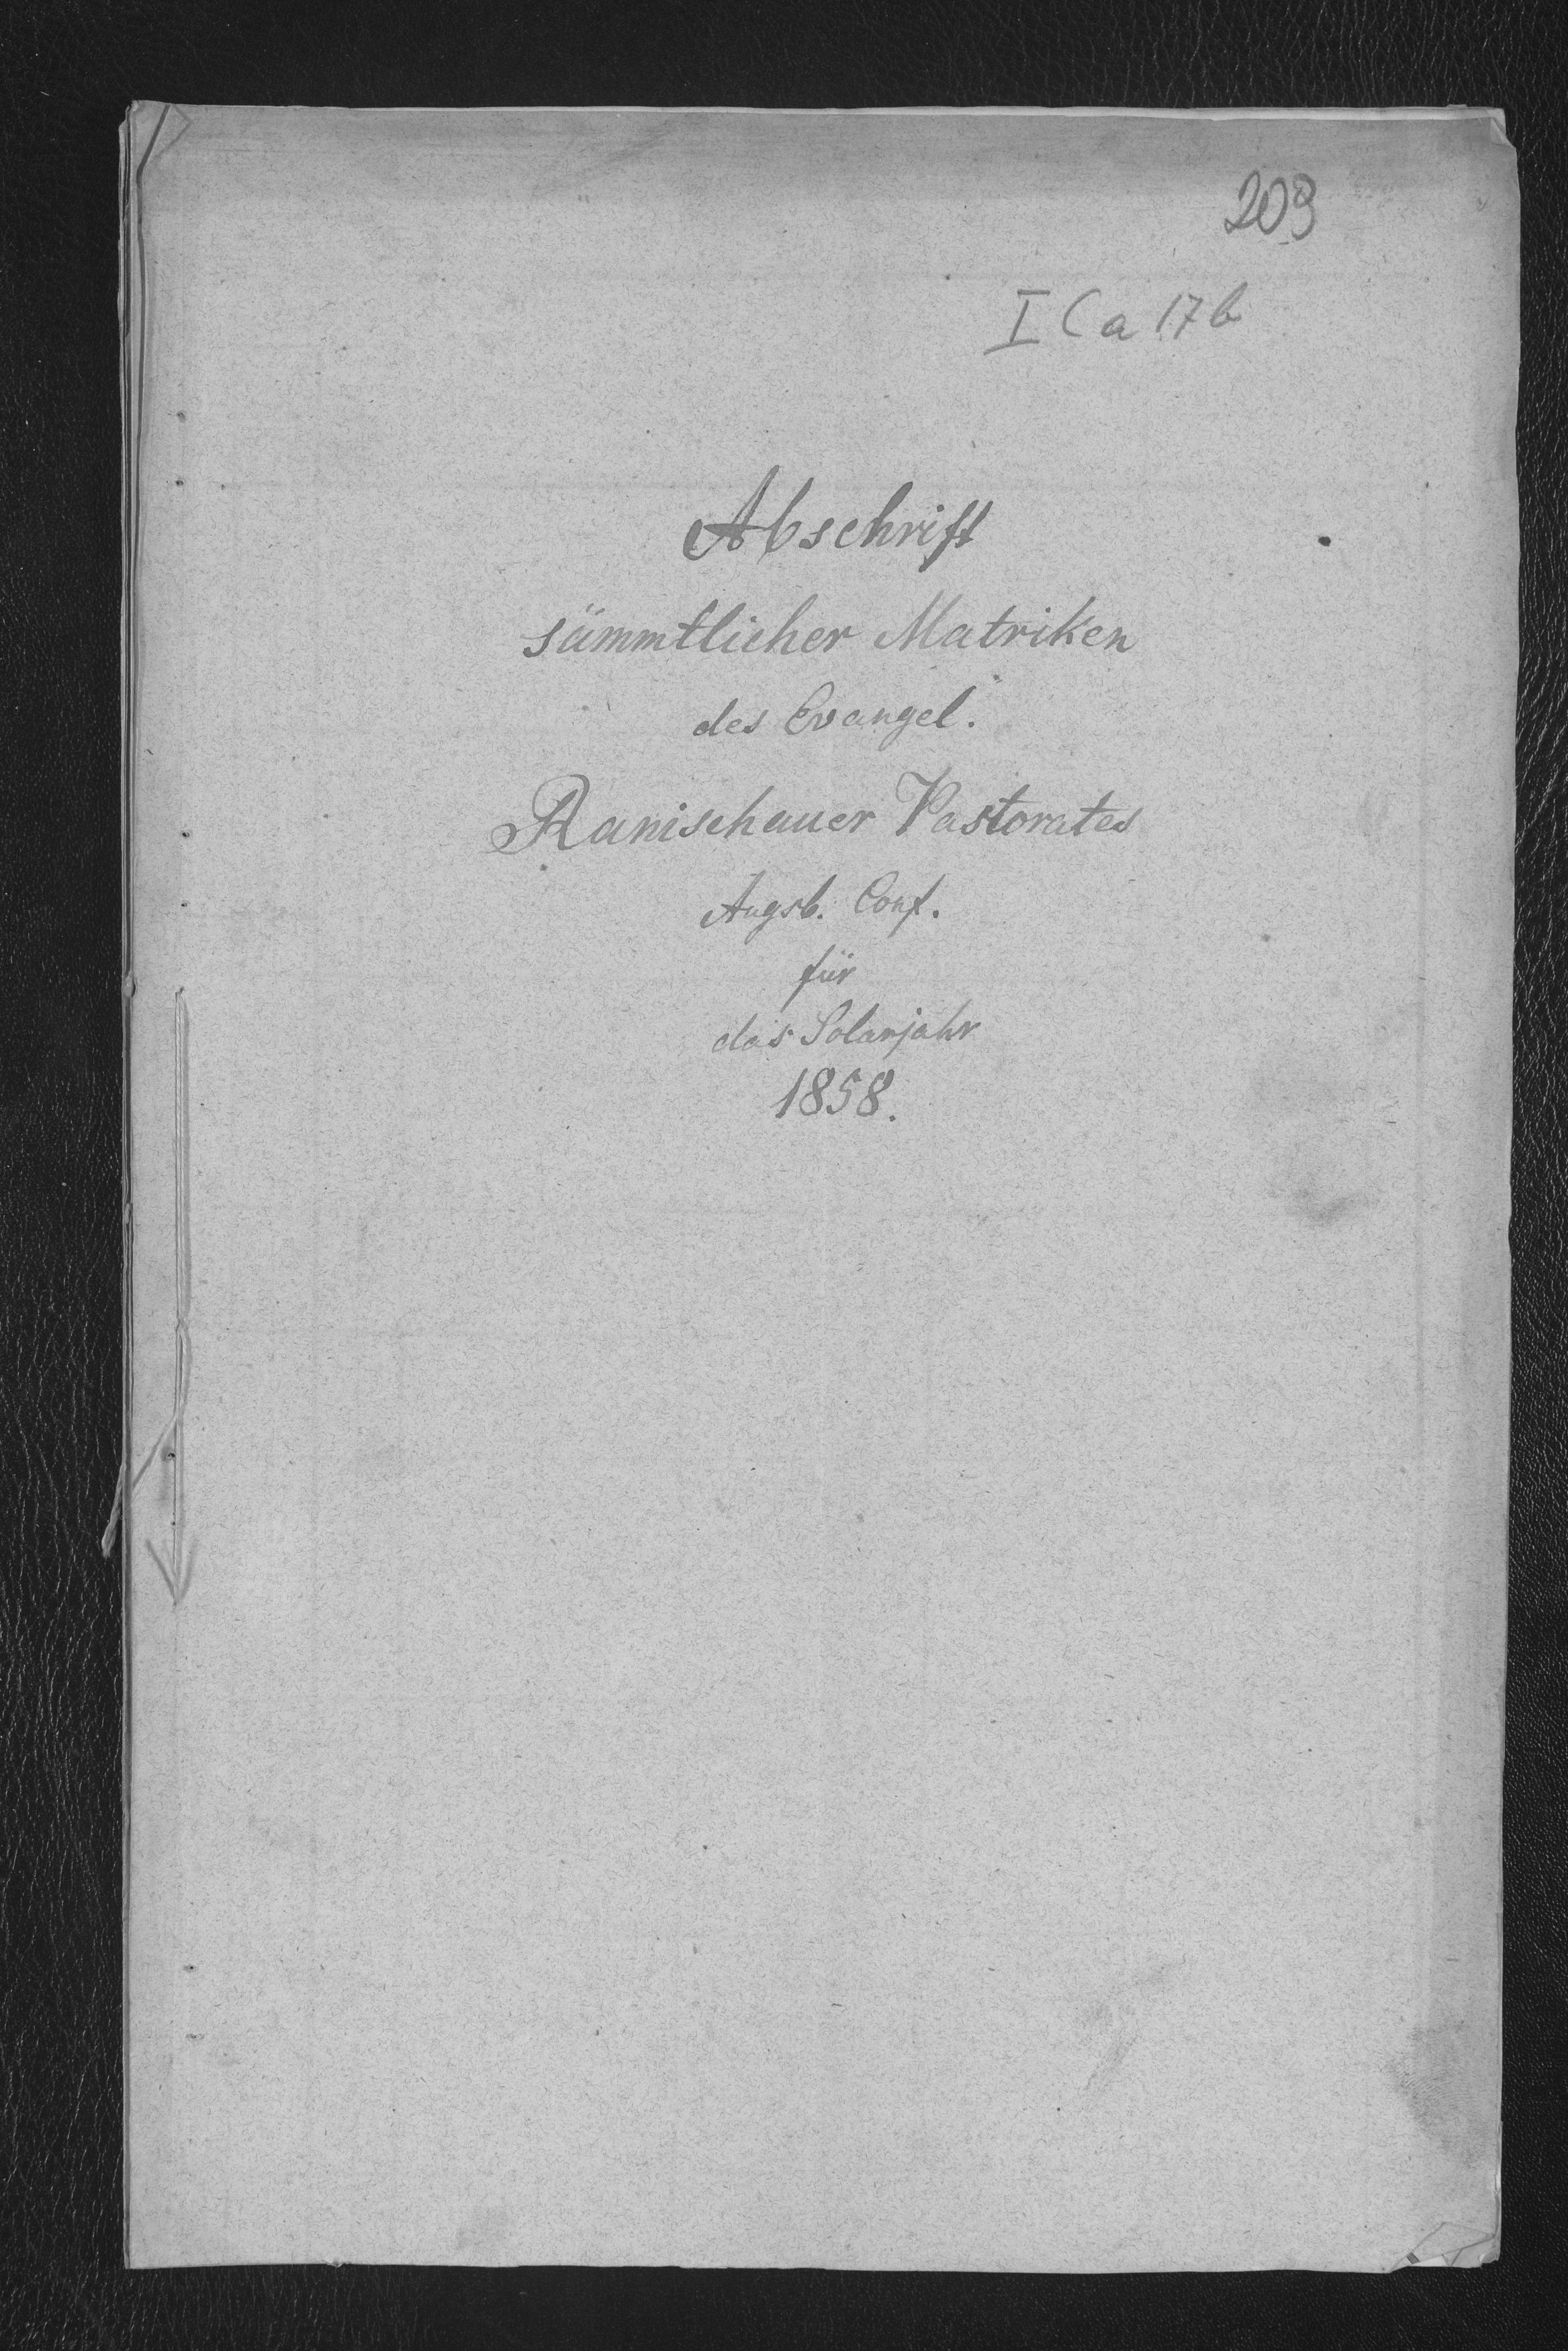 203
I C a 17 b
Abschrift
sämmtlicher Matriken
des Evangel.
Ranischauer Pastorates
Augsb. Conf.
für
das Solarjahr
1858.